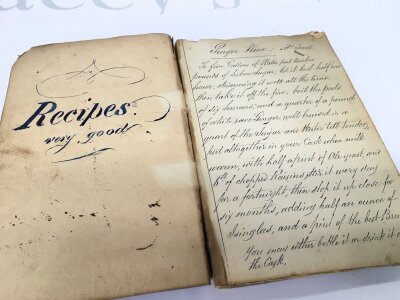 Recipes.
very good
Ginger Wine
To five Gallons of Water put twelve
pounds of Lisbon Sugar, let it boil half an
hour, skimming it well all the time
then take it off the fire, boil the peels
of six Lemons, and a quarter of a pound
of white race Ginger well bruised in a
quart of the Sugar and Water till tender
put altogether in your Cask when milk
warm, with half a pint of Ale yeast, and
6lb of chopped Raisins stir it every day
for a fortnight then stop it up close for
six months, adding half an ounce of
Isinglass, and a pint of the best
You may either bottle it or drink it
the Cask.